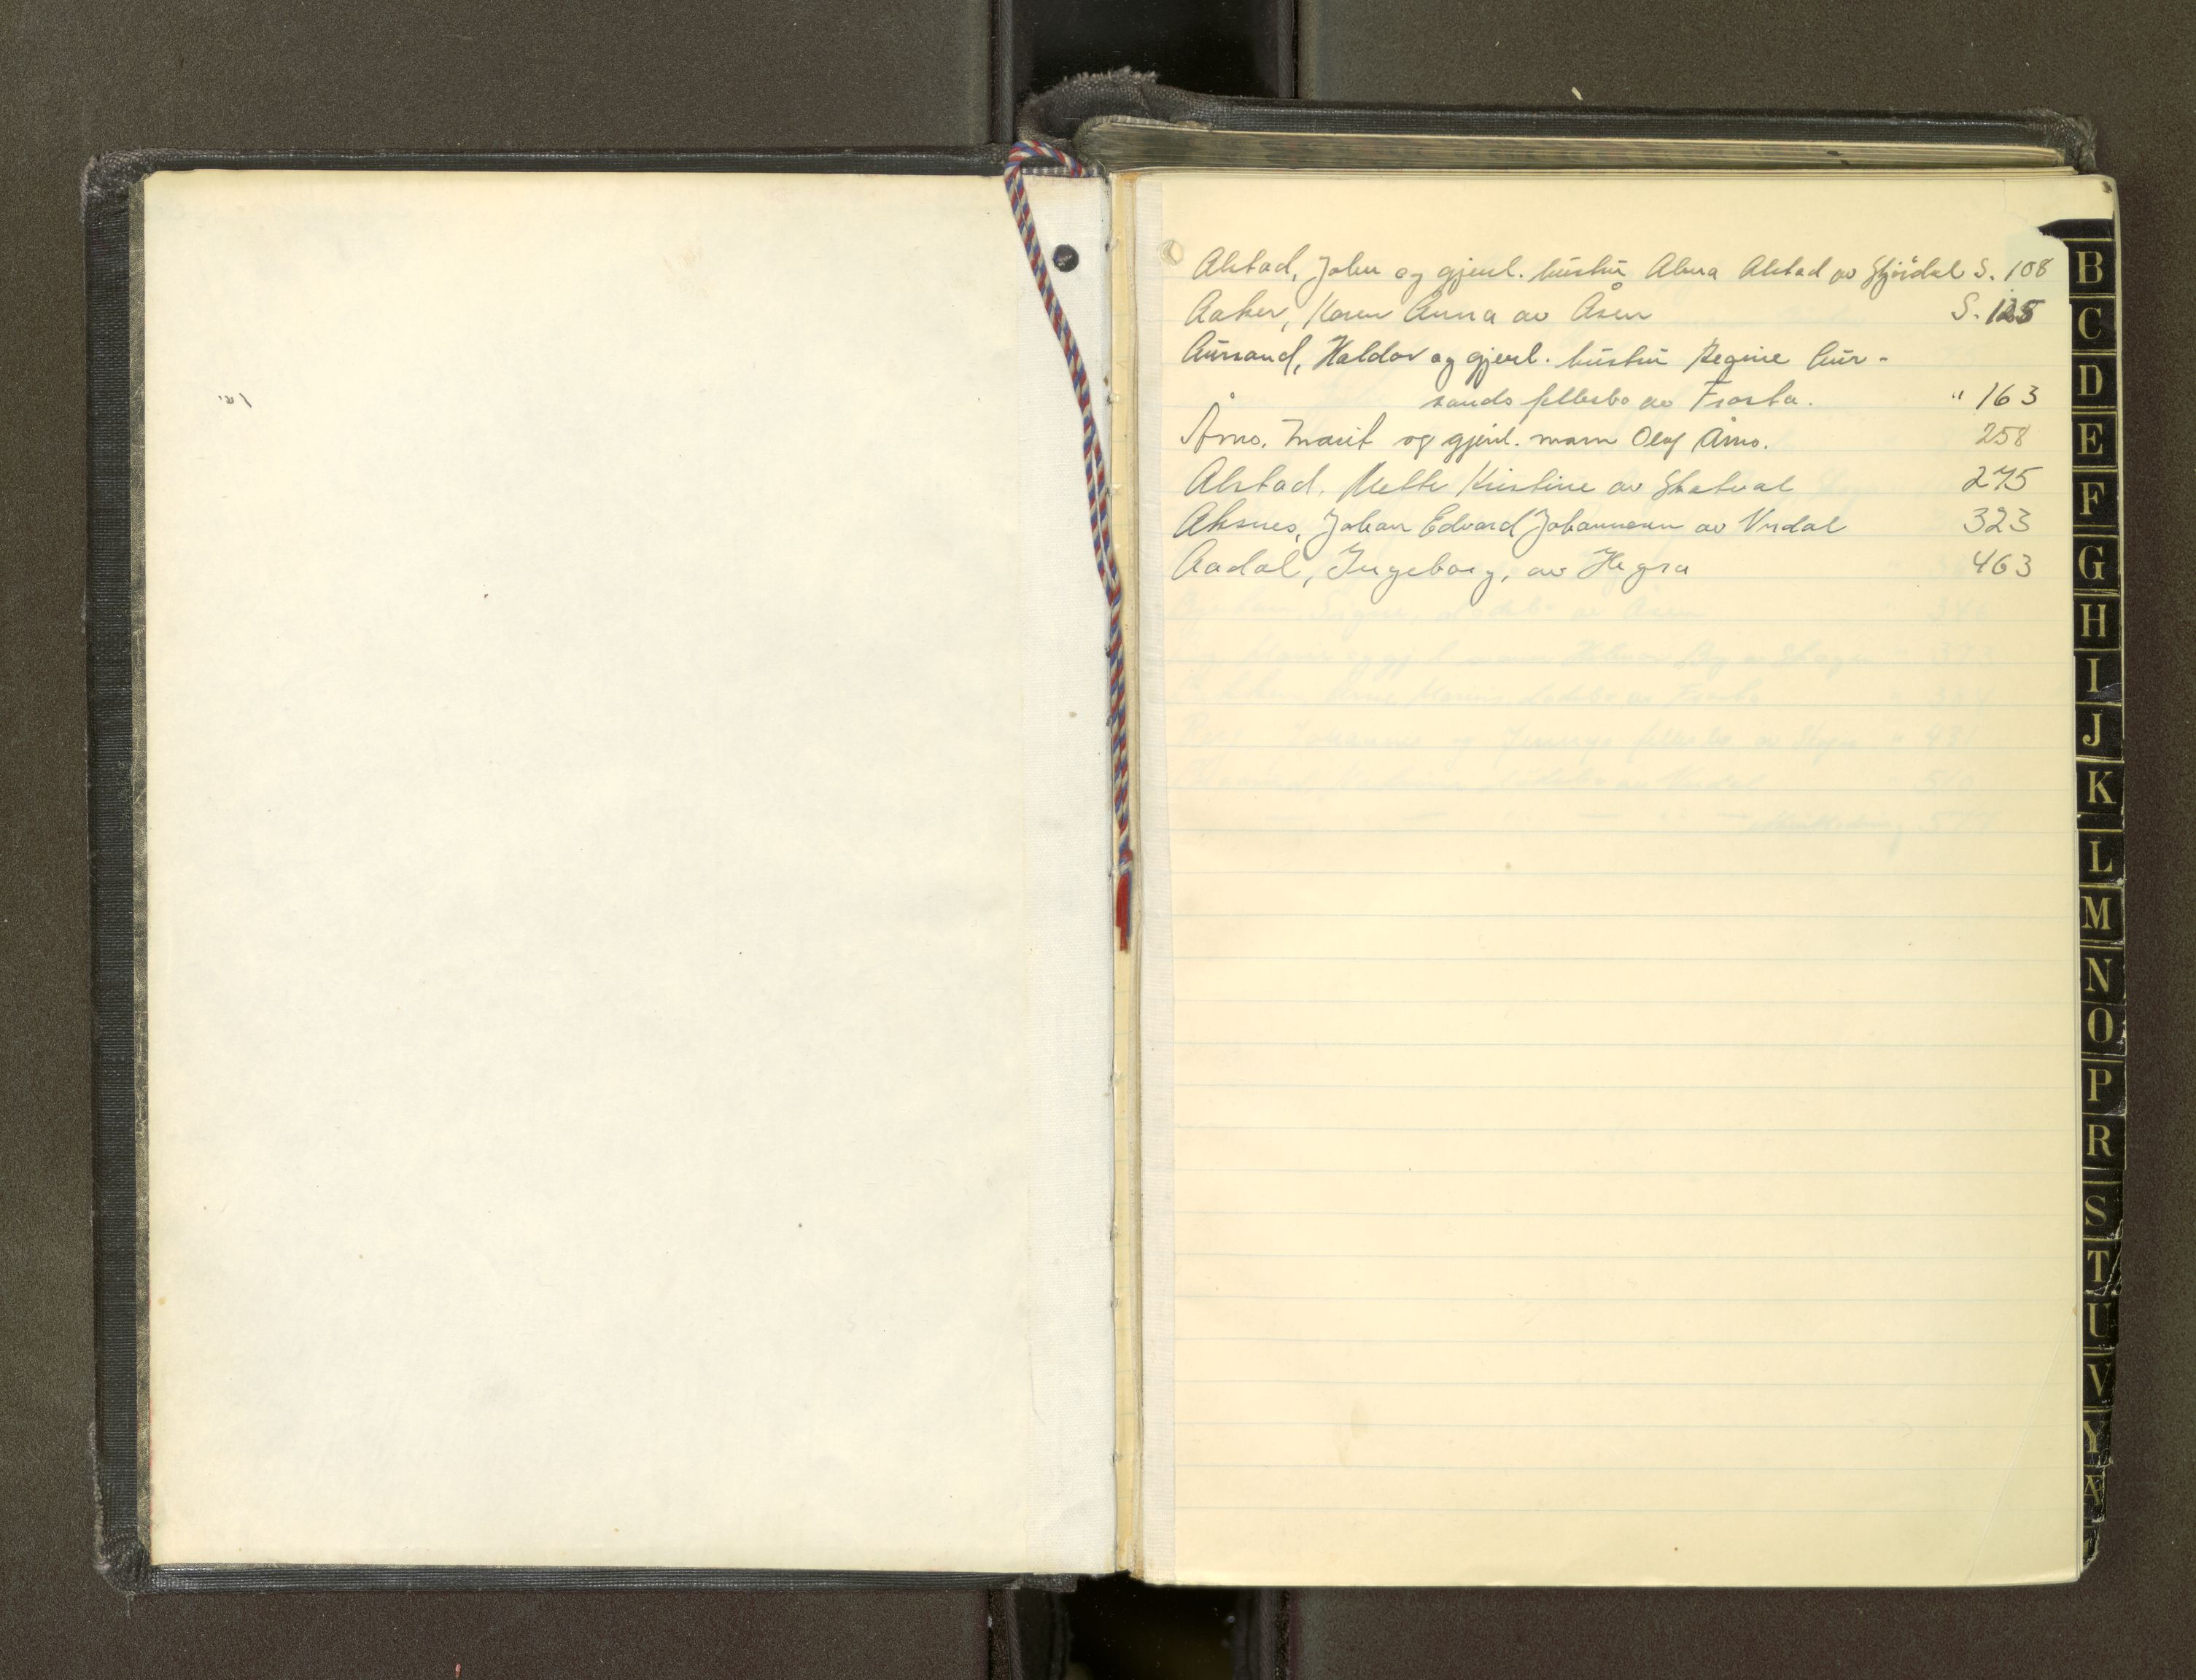 Alstad, John og gjenl. hustru Alma Alstad av Stjördal S. 108
Aaker, Karen Anna av Åsen S. 125
Aursand, Haldor og gjenl. hustru Regine Aur-
sands fellesbo av Frosta. " 163
Åmo. Marit og gjenl. mann Olaf Åmo. 258
Alstad, Mette Kristine av Skatval 275
Aksnes, Johan Edvard Johannesen av Verdal 323
Aadal, Ingeborg, av Hegra 463
B
C
D
E
F
G
H
I
J
K
L
M
N
O
P
R
S
T
U
V
Y
Æ